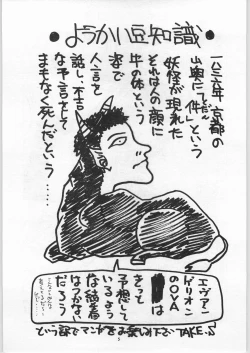 ●ようかい豆知識●
一八三六年、京都の
山奥に「件」という
くだん
妖怪が現れた
それは人の顔に
牛の体という
姿で
人言を
話し、不吉
な予言をして
まもなく死んだという……
エヴァン
ゲリオン
のOVA
は
きっと
いるまう
予想して
な結着
はつかない
だろう
という訳でマンガをお楽しみ下さい TAKE.S